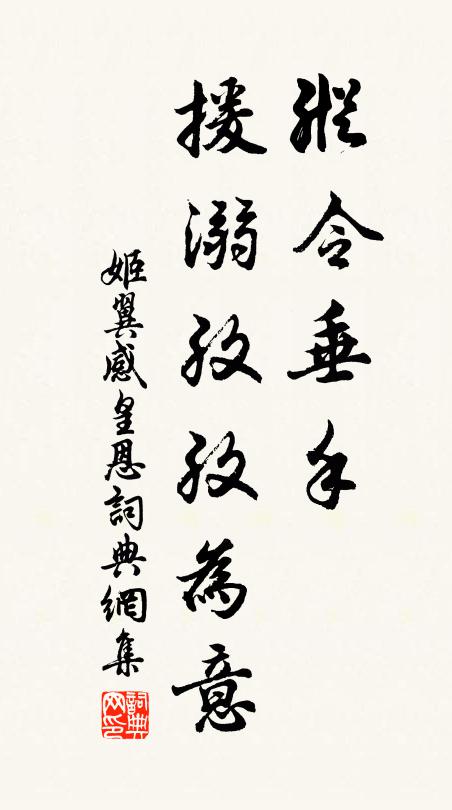 縱令垂手
援溺孜孜為意
姬翼感皇恩詞典網集
詞典網印